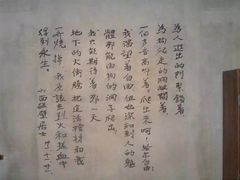 為人進出的門緊鎖着
為狗爬走的洞敞開着
一個声音高叫着：爬出來呵，給尔自由！
我渴望着自由但也深知到人的軀
體那能由狗的洞子爬出
我只能期待着，那一天
地下的火衝騰把這活棺材和我
一齊燒掉，我應該在烈火和热血中
得到永生。
六面碰壁居士